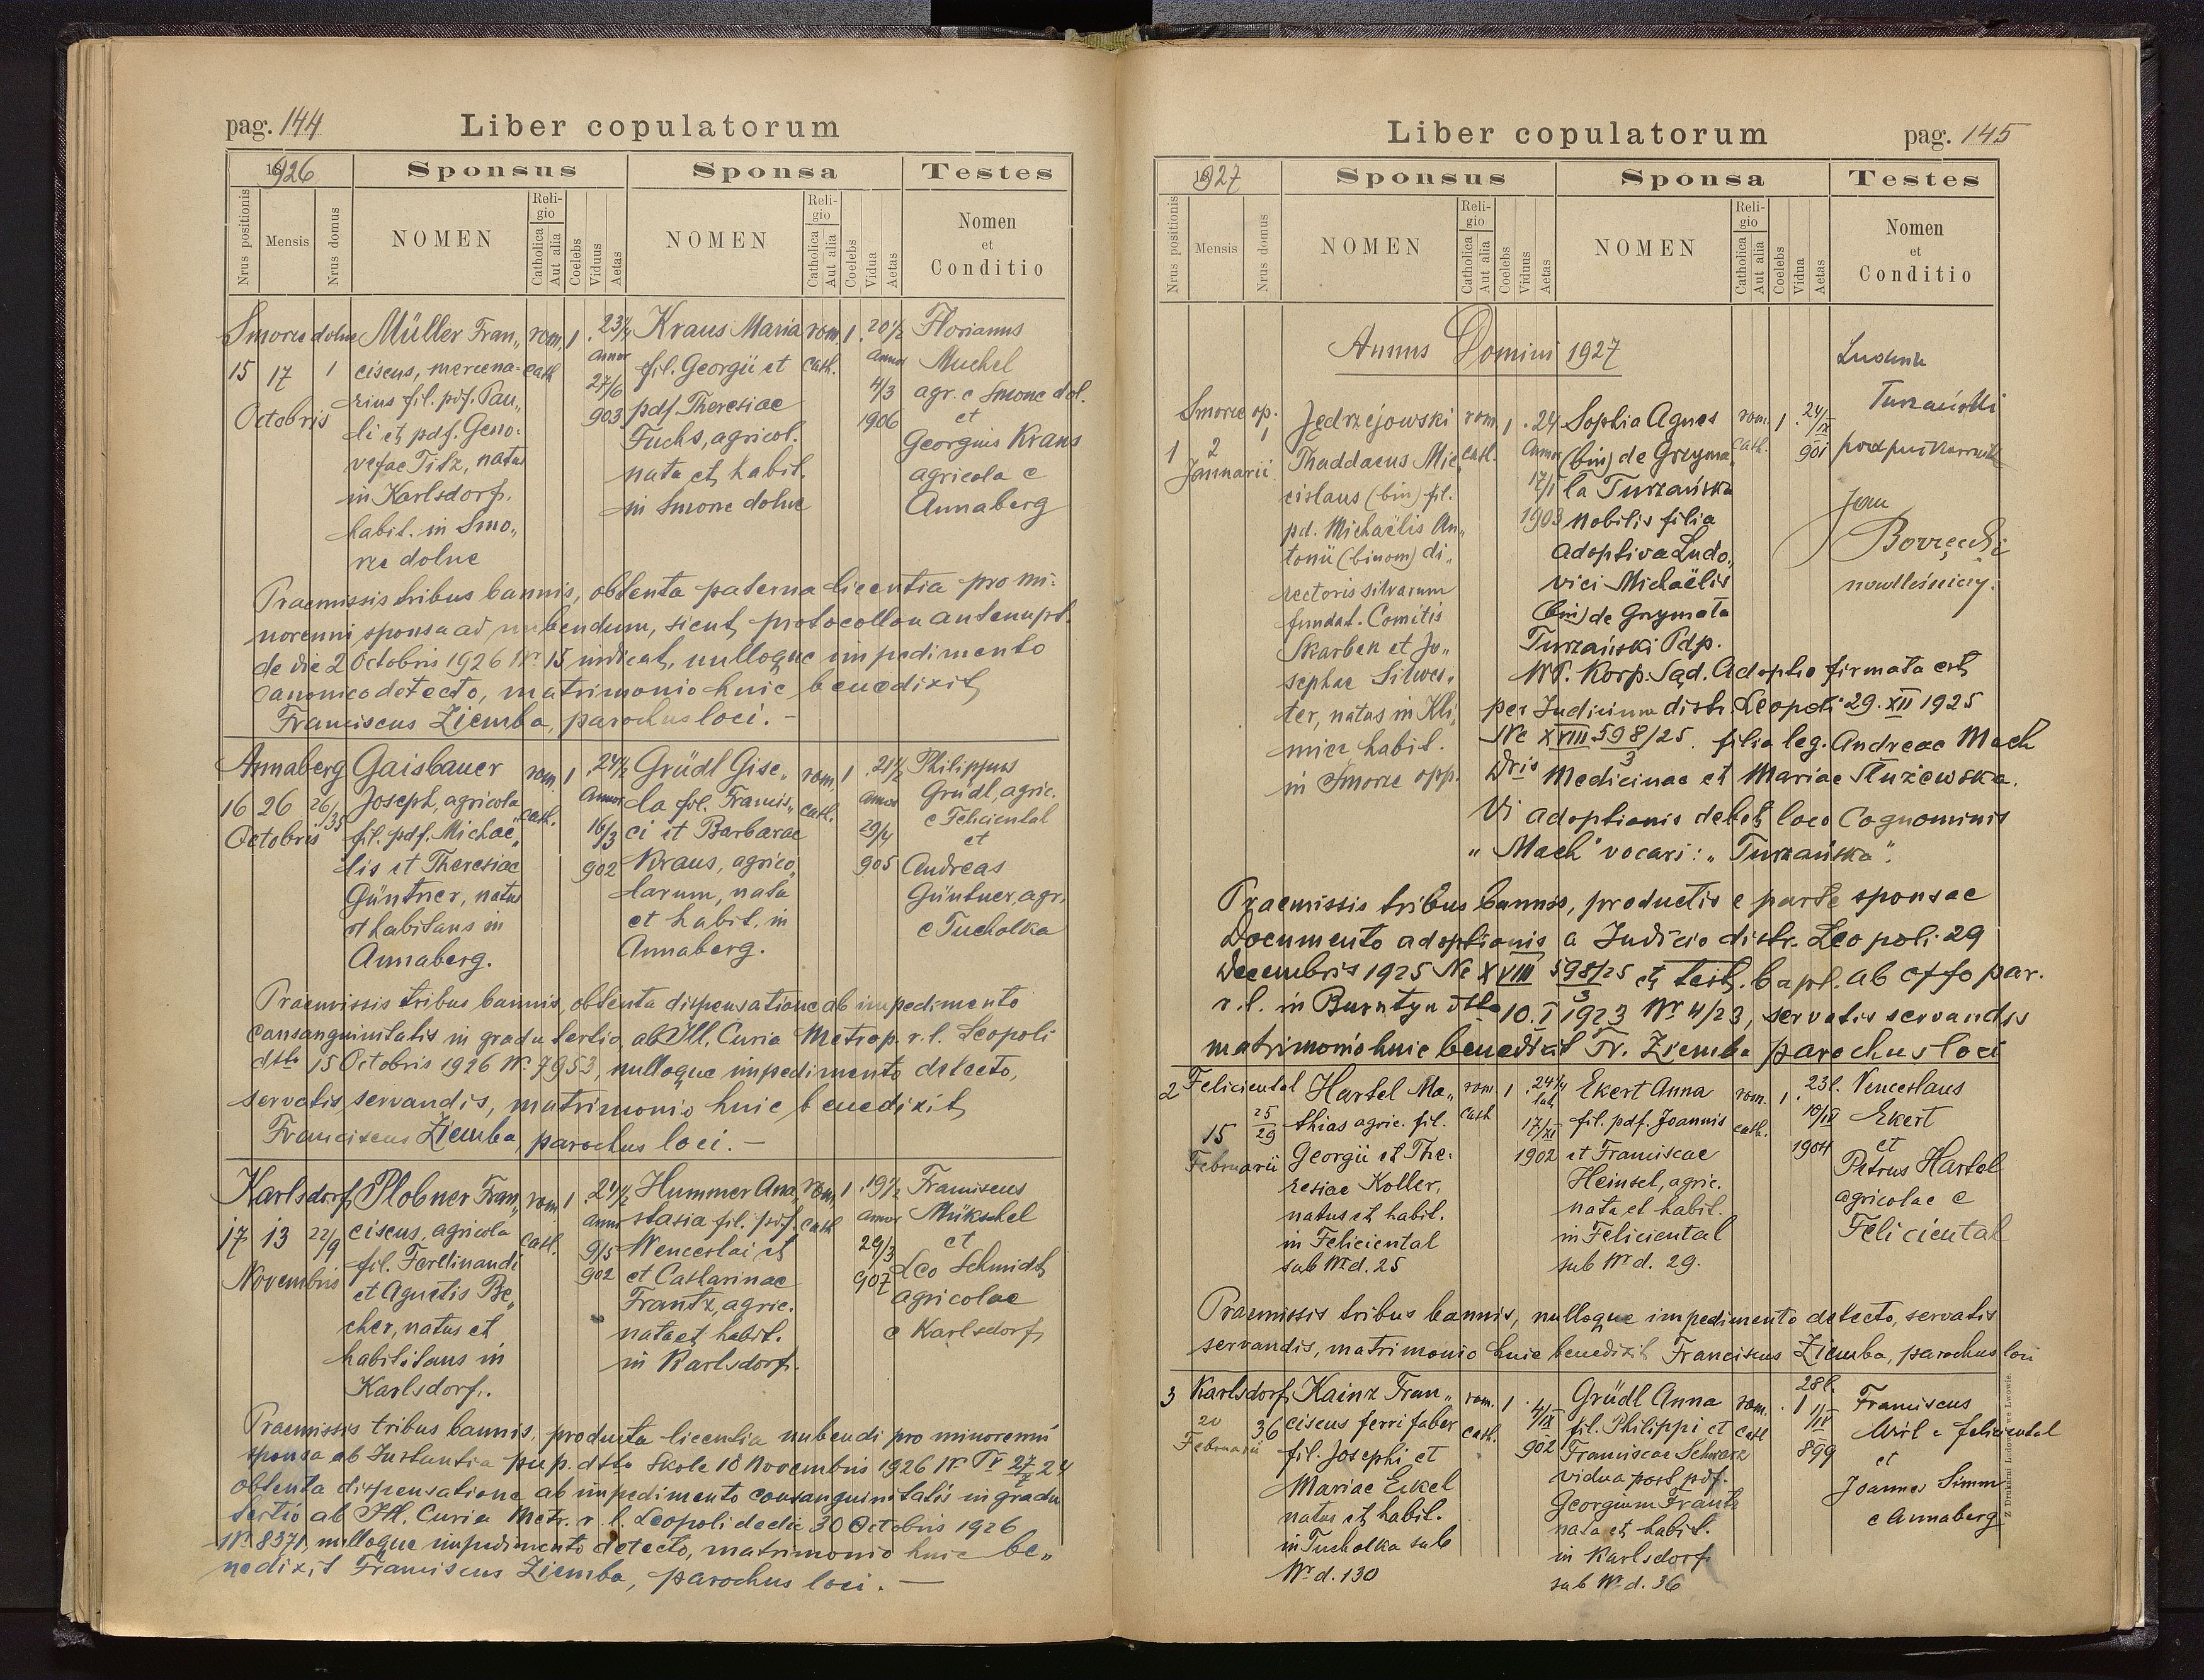 pag. 144
Liber copulatorum
1926
Sponsus
Sponsa
Testes
Nrus positionis
Mensis
Nrus domus
NOMEN
Religio
Catholica
Aut alia
Coelebs
Viduus
Aetas
NOMEN
Religio
Catholica
Aut alia
Coelebs
Vidua
Aetas
Nomen
et
Conditio
Smorze dolne
15 17 1
Octobris
Müller Fran„
ciscus, mercena-
rius fil. pdf. Pau„
li et pdf. Geno:
vefae Titz, natus
in Karlsdorf.
habit. in Smo„
rze dolne
rom. 1 . 23 1/4
cath Annor
27/6
903
Kraus Maria
fil. Georgii et
pdf. Theresiae
Fuchs, agricol.
nata et habit.
in Smorze dolne
rom. 1 . 20 1/2
cath. Annor
4/3
1906
Florianus
Muchel
agr. e Smorze dol.
et
Georgius Kraus
agricola e
Annaberg
Praemissis tribus bannis, obtenta paterna licentia pro mi:
norenni sponsa ad nubendum, sicut protocollon antenupt.
de die 2 Octobris 1926 Nr 15 indicat, nulloque impedimento
canonico detecto, matrimonio huic benedixit
Franciscus Ziemba, parochus loci. -
Annaberg
16 26 26/35
Octobris
Gaisbauer
Joseph, agricola
fil. pdf. Michae„
lis et Theresiae
Güntner, natus
et habitans in
Annaberg.
rom. 1 . 24 1/2
cath. Annor
16/3
902
Grüdl Gise„
la fil. Francis„
ci et Barbarae
Kraus, agrico„
larum, nata
et habit. in
Annaberg.
rom. 1 . 21 1/2
cath. annor
29/4
905
Philippus
Grüdl, agric.
e Feliciental
et
Andreas
Güntner, agr.
e Tucholka
Praemissis tribus bannis, obtenta dispensatione ab impedimento
consanguinitatis in gradu tertio, ab Ill. Curia Metrop. r. l. Leopoli
dtto 15 Octobris 1926 Nr 7953, nulloque impedimento detecto,
servatis servandis, matrimonio huic benedixit
Franciscus Ziemba, parochus loci. —
Karlsdorf
17 13 22/9
Novembris
Plobner Fran„
ciscus, agricola
fil. Ferdinandi
et Agnetis Be„
cher, natus et
habilitans in
Karlsdorf.
rom. 1 . 24 1/2
cath. Annor
9/5
902
Hummer Ana„
stasia fil. pdf.
Wenceslai et
et Catharinae
Frantz, agric.
nata et habit.
in Karlsdorf.
rom. 1 . 19 1/2
cath annor
29/3
907
Franciscus
Mükschel
et
Leo Schmidt
agricolae
e Karlsdorf
Praemissis tribus bannis, producta licentia nubendi pro minorenni
sponsa ab Instantia pup. dtto Skole 18 Novembris 1926 Nr
obtenta dispensatione ab impedimento consanguinitatis in gradu
tertio ab Ill. Curia Metr. r. l. Leopoli dedie 30 Octobris 1926
Nr. 8371, nulloque impedimento detecto, matrimonio huic be„
nedixit Franciscus Ziemba, parochus loci. —
Liber copulatorum
pag. 145
1927
Sponsus
Sponsa
Testes
Nrus positionis
Mensis
Nrus domus
NOMEN
Religio
Catholica
Aut alia
Coelebs
Viduus
Aetas
NOMEN
Religio
Catholica
Aut alia
Coelebs
Vidua
Aetas
Nomen
et
Conditio
Annus Domini 1927
Smorze op.
1 2 1
Januarii
Jędrzejowski
Thaddaeus Mie„
cislaus (bin) fil.
pd. Michaëlis An„
tonii (binom) di„
rectoris silvarum
fundat. Comitis
Skarbek et Jo„
sephae Silwes„
ter, natus in Kli„
miec habit.
in Smorze opp.
rom. 1 . 24
cath. Annor
17/I
1903
Sophia Agnes
(bin) de Grzyma„
la Turzańska
nobilis filia
adoptiva Ludo„
vici Michaëlis
(bin) de Grzymała
Turzański Pdp.
WP. Korp. Sąd. Adoptio firmata est
per Judicium distr. Leopoli 29. XII 1925
Nc XVIII 598/25/3. filia leg. Andreae Mach
Dris Medicinae et Mariae Służewska.
Vi adoptionis debet loco Cognominis
„Mach" vocari: „Turzańska".
rom. 1 . 24/IX
cath. 901
Turzański
podpułkownik
Jan
Borzęcki
nadleśniczy.
Praemissis tribus bannis, productis e parte sponsae
Documento adoptionis a Judicio distr. Leopoli 29
Decembris 1925 Nc XVIII 598/25/3 et test. bapt. ab offo par.
r. l. in Bursztyn dtto 10. I 1923 Nr 4/23, servatis servandis
matrimonio huic benedixit Fr. Ziemba parochus loci
2 Feliciental
15 25/29
Februarii
Hartel Ma„
thias agric. fil.
Georgii et The:
resiae Koller,
natus et habit.
in Feliciental
sub Nr d. 25
rom. 1 . 24 1/4
cath
17/XI
1902
Ekert Anna
fil. pdf. Joannis
et Franciscae
Heinsel, agric.
nata et habit.
in Feliciental
sub Nr d. 29.
rom. 1 . 23 l.
cath. 10/IV
1904
Venceslaus
Ekert
et
Petrus Hartel
agricolae e
Feliciental
Praemissis tribus bannis, nulloque impedimento detecto, servatis
servandis, matrimonio huic benedixit Franciscus Ziemba, parochus loci
3 Karlsdorf
20 36
Februarii
Kainz Fran„
ciscus ferri faber
fil. Josephi et
Mariae Eckel
natus et habit.
in Tucholka sub
Nr d. 130
rom. 1 . 4/IX
cath. 902
Grüdl Anna
fil. Philippi et
Franciscae Schwarz
vidua post pdf.
Georgium Frantz
nata et habit.
in Karlsdorf
sub Nr d. 36
rom. . 1 28 l.
cath 11/IV
899
Franciscus
Wirl e Feliciental
et
Joannes Simm
e Annaberg
z Drukarni Ludowej we Lwowie.